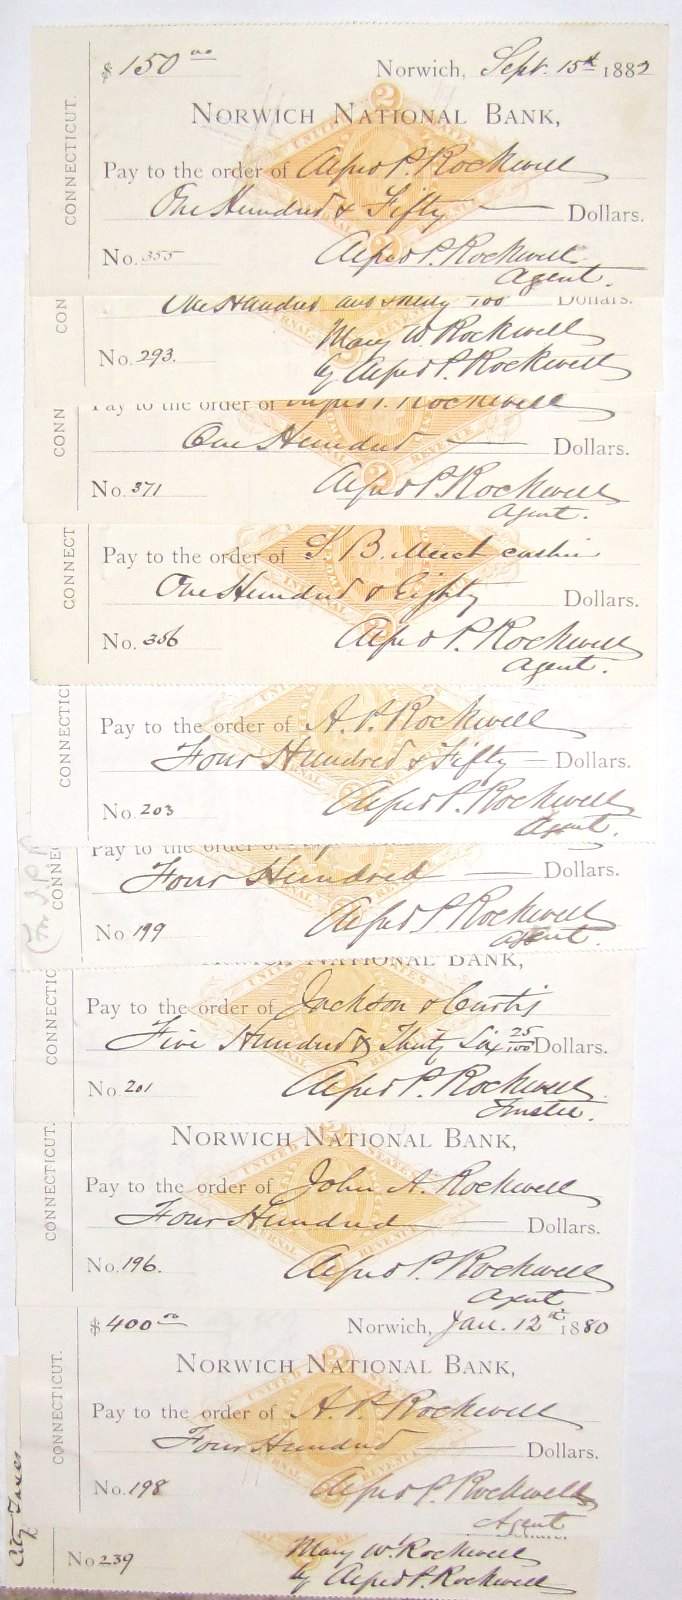 $150 00 Norwich, Sept. 15th 1882
NORWICH NATIONAL BANK,
Pay to the order of Alfred P. Rockwell
One Hundred & Fifty Dollars.
No. 355 Alfred P. Rockwell
Agent.
CONNECTICUT.
One Hundred and 100 Dollars.
Mary W. Rockwell
No. 293. by Alfred P. Rockwell
CON
Pay to the order of Alfred P. Rockwell
One Hundred Dollars.
No. 371 Alfred P. Rockwell
Agent.
CONN
Pay to the order of S B. Meech cashier
One Hundred & Eighty Dollars.
No. 356 Alfred P. Rockwell
Agent.
CONNECT
Pay to the order of A. P. Rockwell
Four Hundred & Fifty Dollars.
No. 203 Alfred P. Rockwell
Agent.
CONNECTIC
Pay to the order of
Four Hundred Dollars.
No. 199 Alfred P. Rockwell
Agent.
CONNE
NORWICH NATIONAL BANK,
Pay to the order of Jackson & Curtis
Five Hundred & Thirty Six 25/100 Dollars.
No. 201 Alfred P. Rockwell
Trustee.
CONNECTIC
NORWICH NATIONAL BANK,
Pay to the order of John A. Rockwell
Four Hundred Dollars.
No. 196. Alfred P. Rockwell
Agent
CONNECTICUT.
$400 00 Norwich, Jan. 12th 1880
NORWICH NATIONAL BANK,
Pay to the order of A. P. Rockwell
Four Hundred Dollars.
No. 198 Alfred P. Rockwell
Agent
CONNECTICUT.
City Taxes
Mary W. Rockwell
No 239 by Alfred P. Rockwell